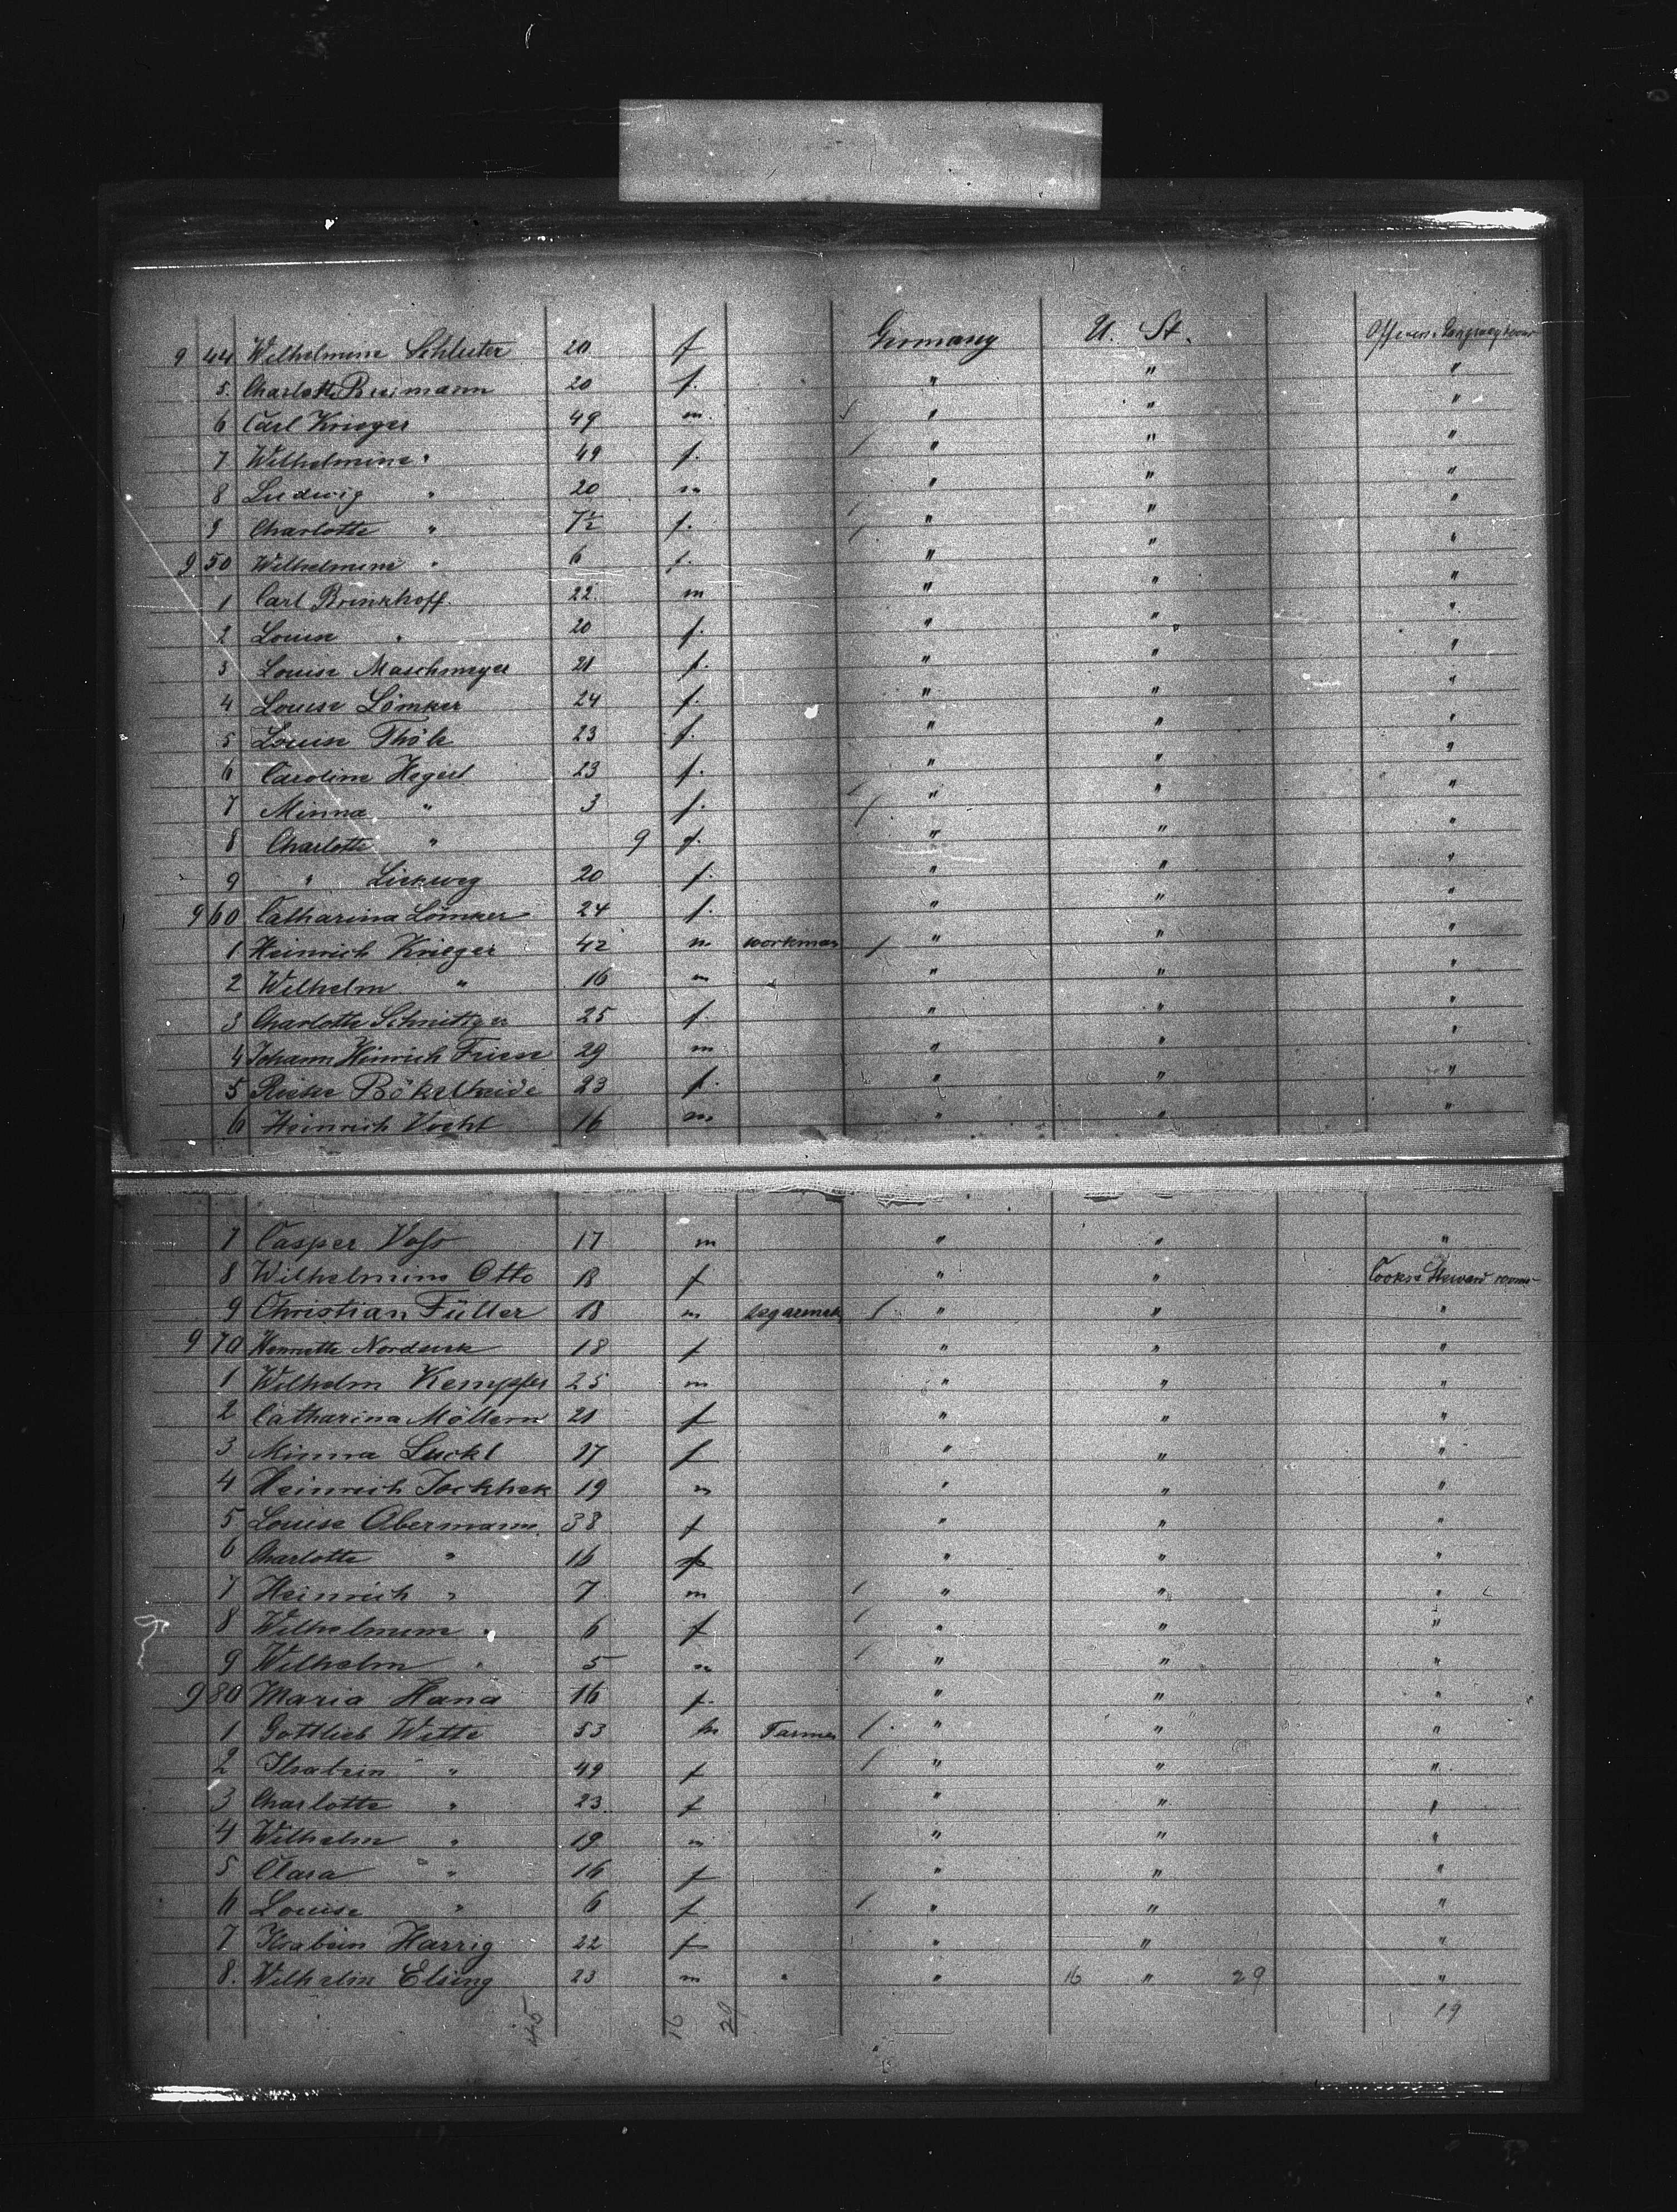 944 Wilhelmine Schluter 20 f Germany U. St.
5. Charlotte Breimann 20 f. " " "
6 Carl Krieger 49 m. " " "
7 Wilhelmine " 49 f. " " "
8 Ludwig " 20 m " " "
9 Charlotte " 7½ f. " " "
950 Wilhelmine " 6 f. " " "
1 Carl Brinkhoff. 22 m " " "
2 Louise " 20 f. " " "
3 Louise Maschmeyer 21 f. " " "
4 Louise Lömker 24 f. " " "
5 Louise Thöle 23 f. " " "
6 Caroline Hegerl 23 f. " " "
7 Minna " 3 f. " " "
8 Charlotte " 9 f. " " "
9 " Lickweg 20 f. " " "
960 Catharina Lömker 24 f. " " "
1 Heinrich Krieger 42 m workman " " "
2 Wilhelm " 16 m " " "
3 Charlotte Schnittger 25 f. " " "
4 Johann Heinrich Friese 29 m " " "
5 Rieke Bökelheide 23 f. " " "
6 Heinrich Vocht 16 m " " "
7 Casper Voss 17 m " " "
8 Wilhelmine Otto 18 f " " Cooks & Steward rooms
9 Christian Füller 18 m segarmak " " "
970 Henriette Nordsiek 18 f " " "
1 Wilhelm Kempfer 25 m " " "
2 Catharina Möllem 21 f " " "
3 Minna Luckt 27 f " " "
4 Heinrich 19 m " " "
5 Louise Obermann 38 f " " "
6 Charlotte " 16 f " " "
7 Heinrich " 7 m " " "
8 Wilhelmine " 6 f " " "
9 Wilhelm " 5 m " " "
980 Maria Hana 16 f. " " "
1 Gottlieb Witte 53 m Farmer " " "
2 Ilsabein " 49 f " " "
3 Charlotte " 23 f " " "
4 Wilhelm " 19 m " " "
5 Clara " 16 f " " "
6 Louise " 6 f " " "
7 Ilsabein Harrig 22 f " " "
8. Wilhelm Elsing 23 m " " 16 " 29 "
45 16 29 19